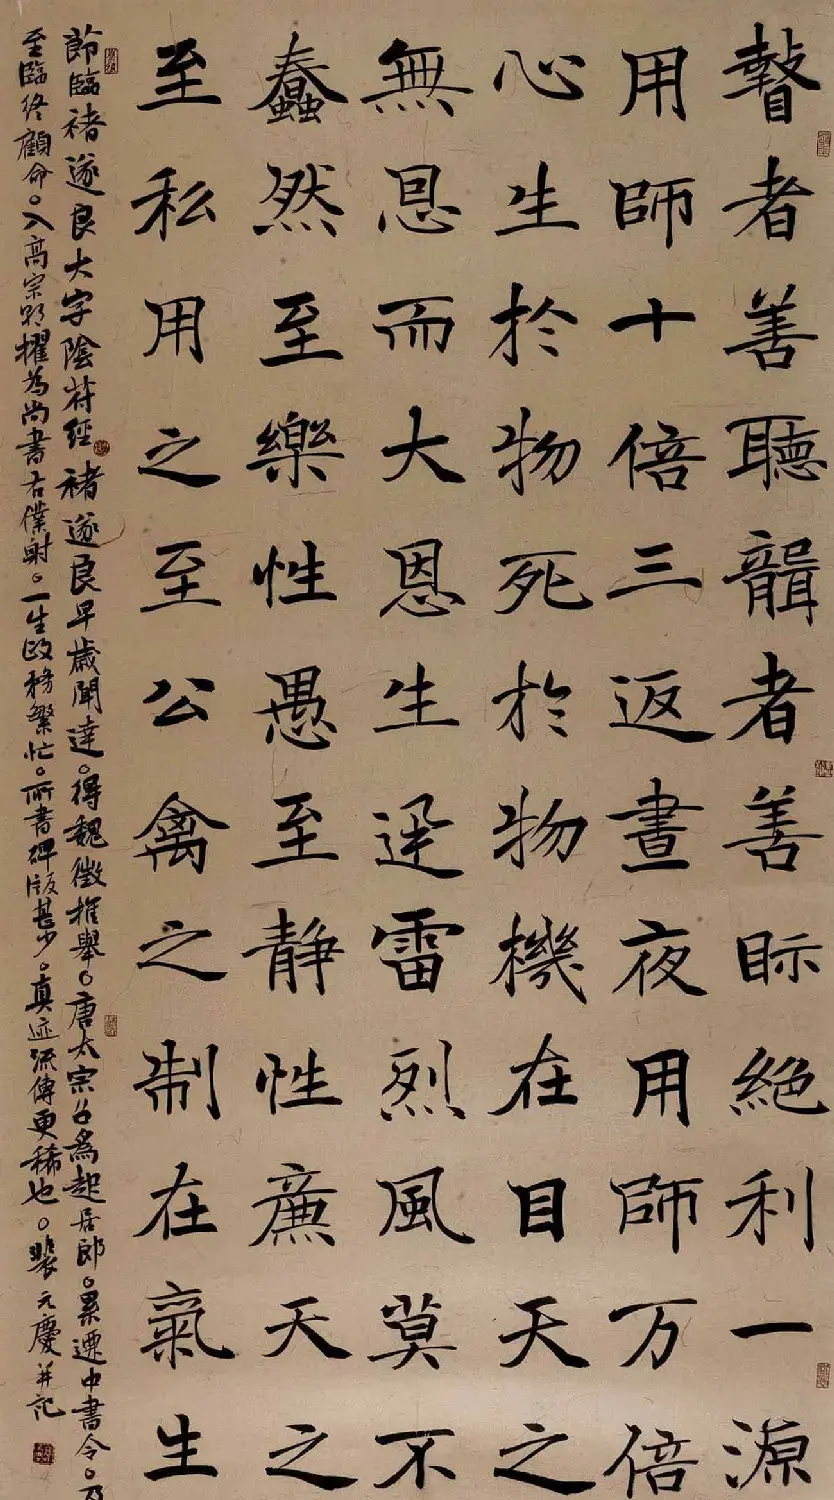 瞽者善聽聾者善眎絕利一源
用師十倍三返晝夜用師万倍
心生於物死於物機在目天之
無恩而大恩生迅雷烈風莫不
蠢然至樂性愚至静性廉天之
至私用之至公禽之制在氣生
節臨褚遂良大字陰符經 褚遂良早歲聞達。得魏徵推舉。唐太宗召爲起居郎。累遷中書令。及
至臨終顧命。入高宗朝擢为尚書右僕射。一生政務繁忙。所書碑版甚少。真迹流傳更稀也。裴元慶并記